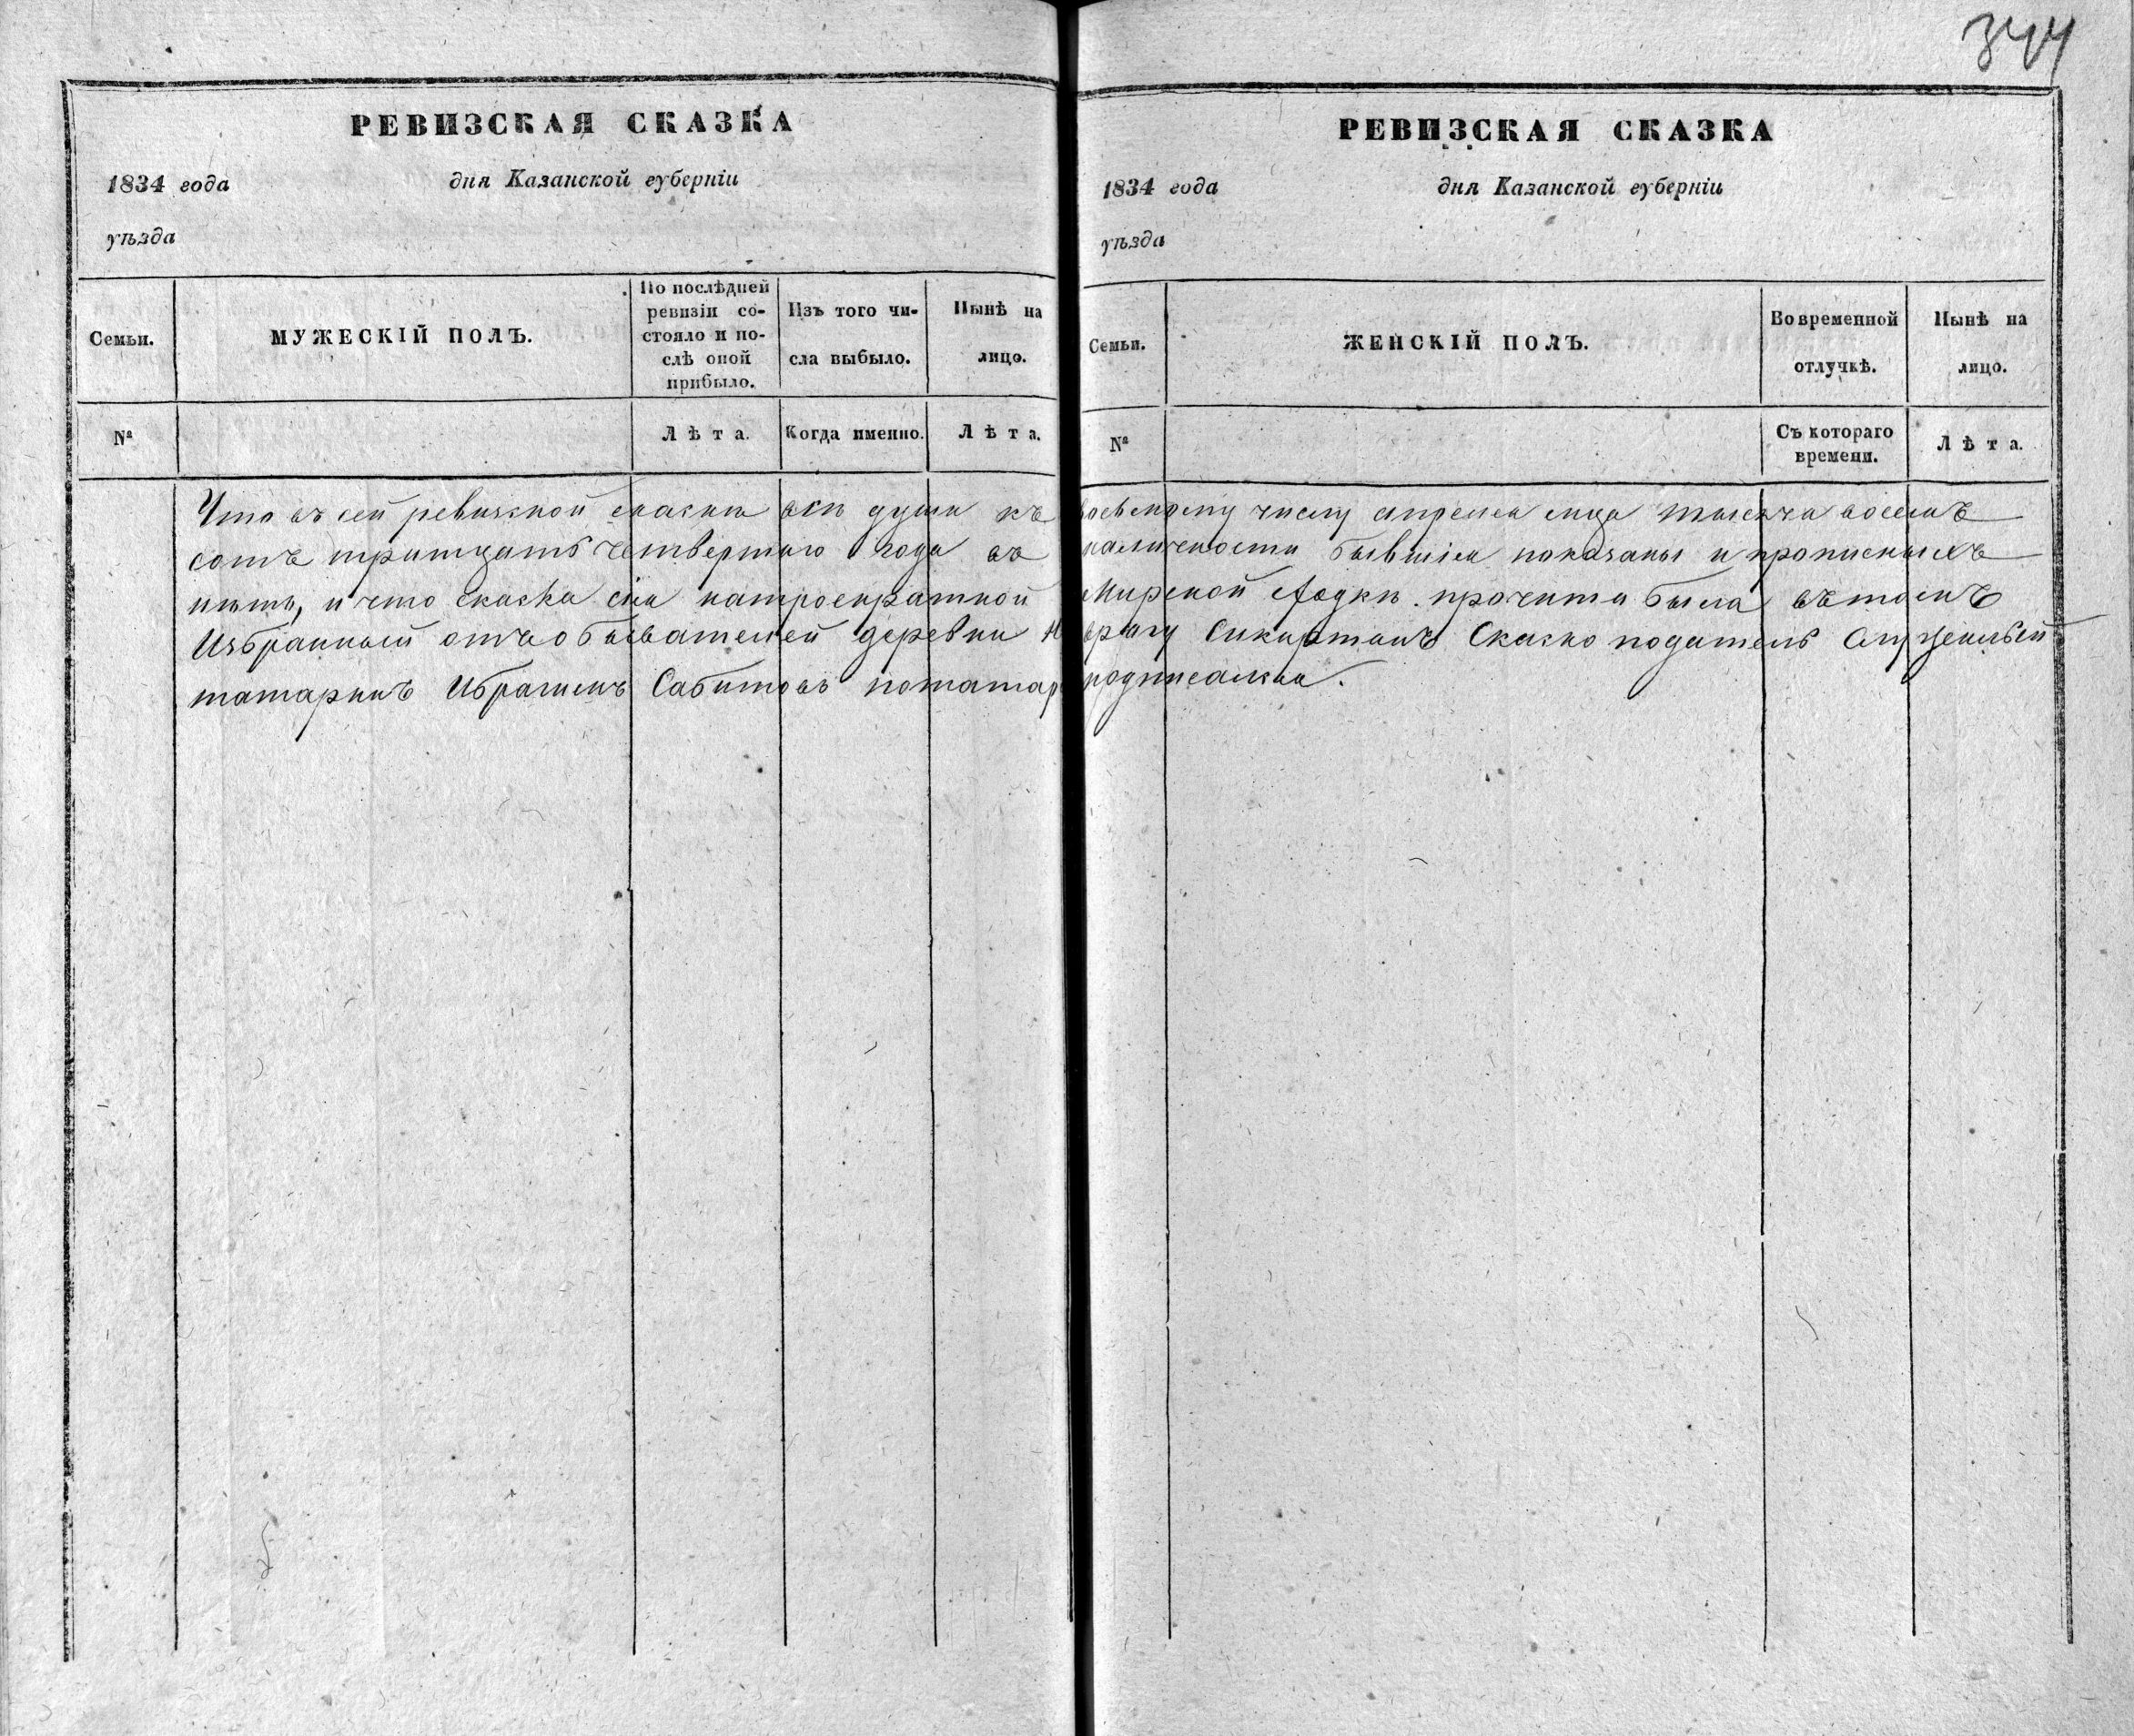 344
РЕВИЗСКАЯ СКАЗКА
1834 года дня Казанской губерніи
уѣзда
Семьи.
МУЖЕСКІЙ ПОЛЪ.
По послѣдней
ревизіи со-
стояло и по-
слѣ оной
прибыло.
Изъ того чи-
сла выбыло.
Нынѣ на
лицо.
№
Лѣта.
Когда именно.
Лѣта.
РЕВИЗСКАЯ СКАЗКА
1834 года дня Казанской губерніи
уѣзда
Семьи.
ЖЕНСКІЙ ПОЛЪ.
Во временной
отлучкѣ.
Нынѣ на
лицо.
№
Съ котораго
времени.
Лѣта.
Что въ сей ревизской сказки всѣ души къ восьмому числу апреля мца тысяча восемъ
сотъ тритцать четвертаго года въ наличности бывшія показаны и прописныхъ
нѣтъ, и что сказка сія натроекратной Мирской сходкѣ прочити была въ томъ
Избранный отъ обывателей деревни врагу Сикиртанъ Сказко податель Служилый
татаринъ Ибрагимъ Сабитовъ потатар подписалъ.